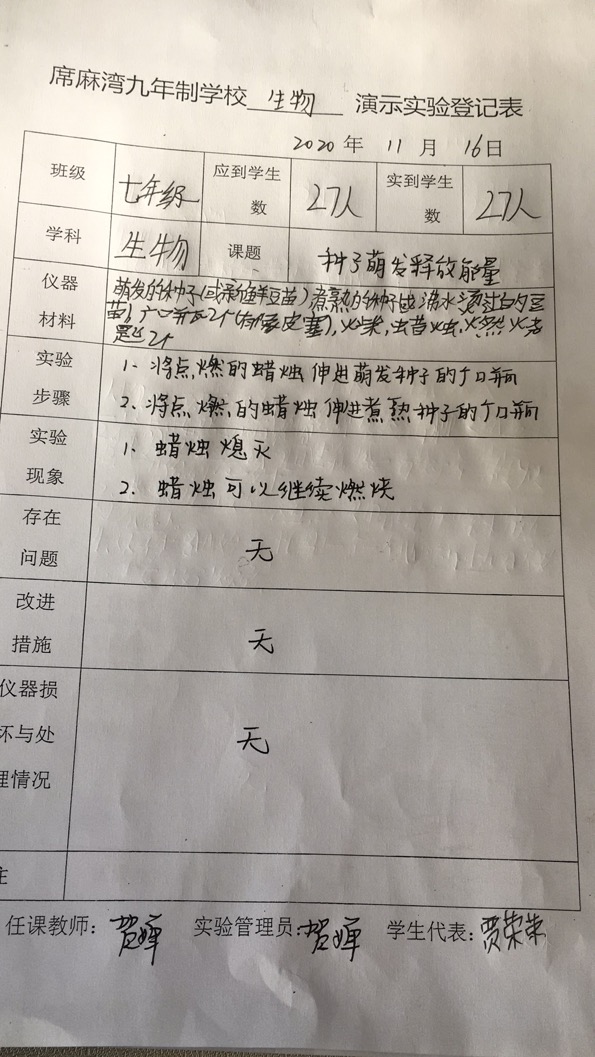 席麻湾九年制学校 生物 演示实验登记表
2020 年 11 月 16日
班级 七年级 应到学生数 27人 实到学生数 27人
学科 生物 课题 种子萌发释放能量
仪器 萌发的种子(或新鲜豆苗)煮熟的种子或沸水烫过的豆
材料 苗),广口瓶2个(有胶皮塞),火柴,蜡烛,
实验 1、将点燃的蜡烛伸进萌发种子的广口瓶
步骤 2、将点燃的蜡烛伸进煮熟种子的广口瓶
实验 1、蜡烛熄灭
现象 2、蜡烛可以继续燃烧
存在
问题 无
改进
措施 无
仪器损
坏与处 无
理情况
注
任课教师: 实验管理员: 学生代表:贾荣荣